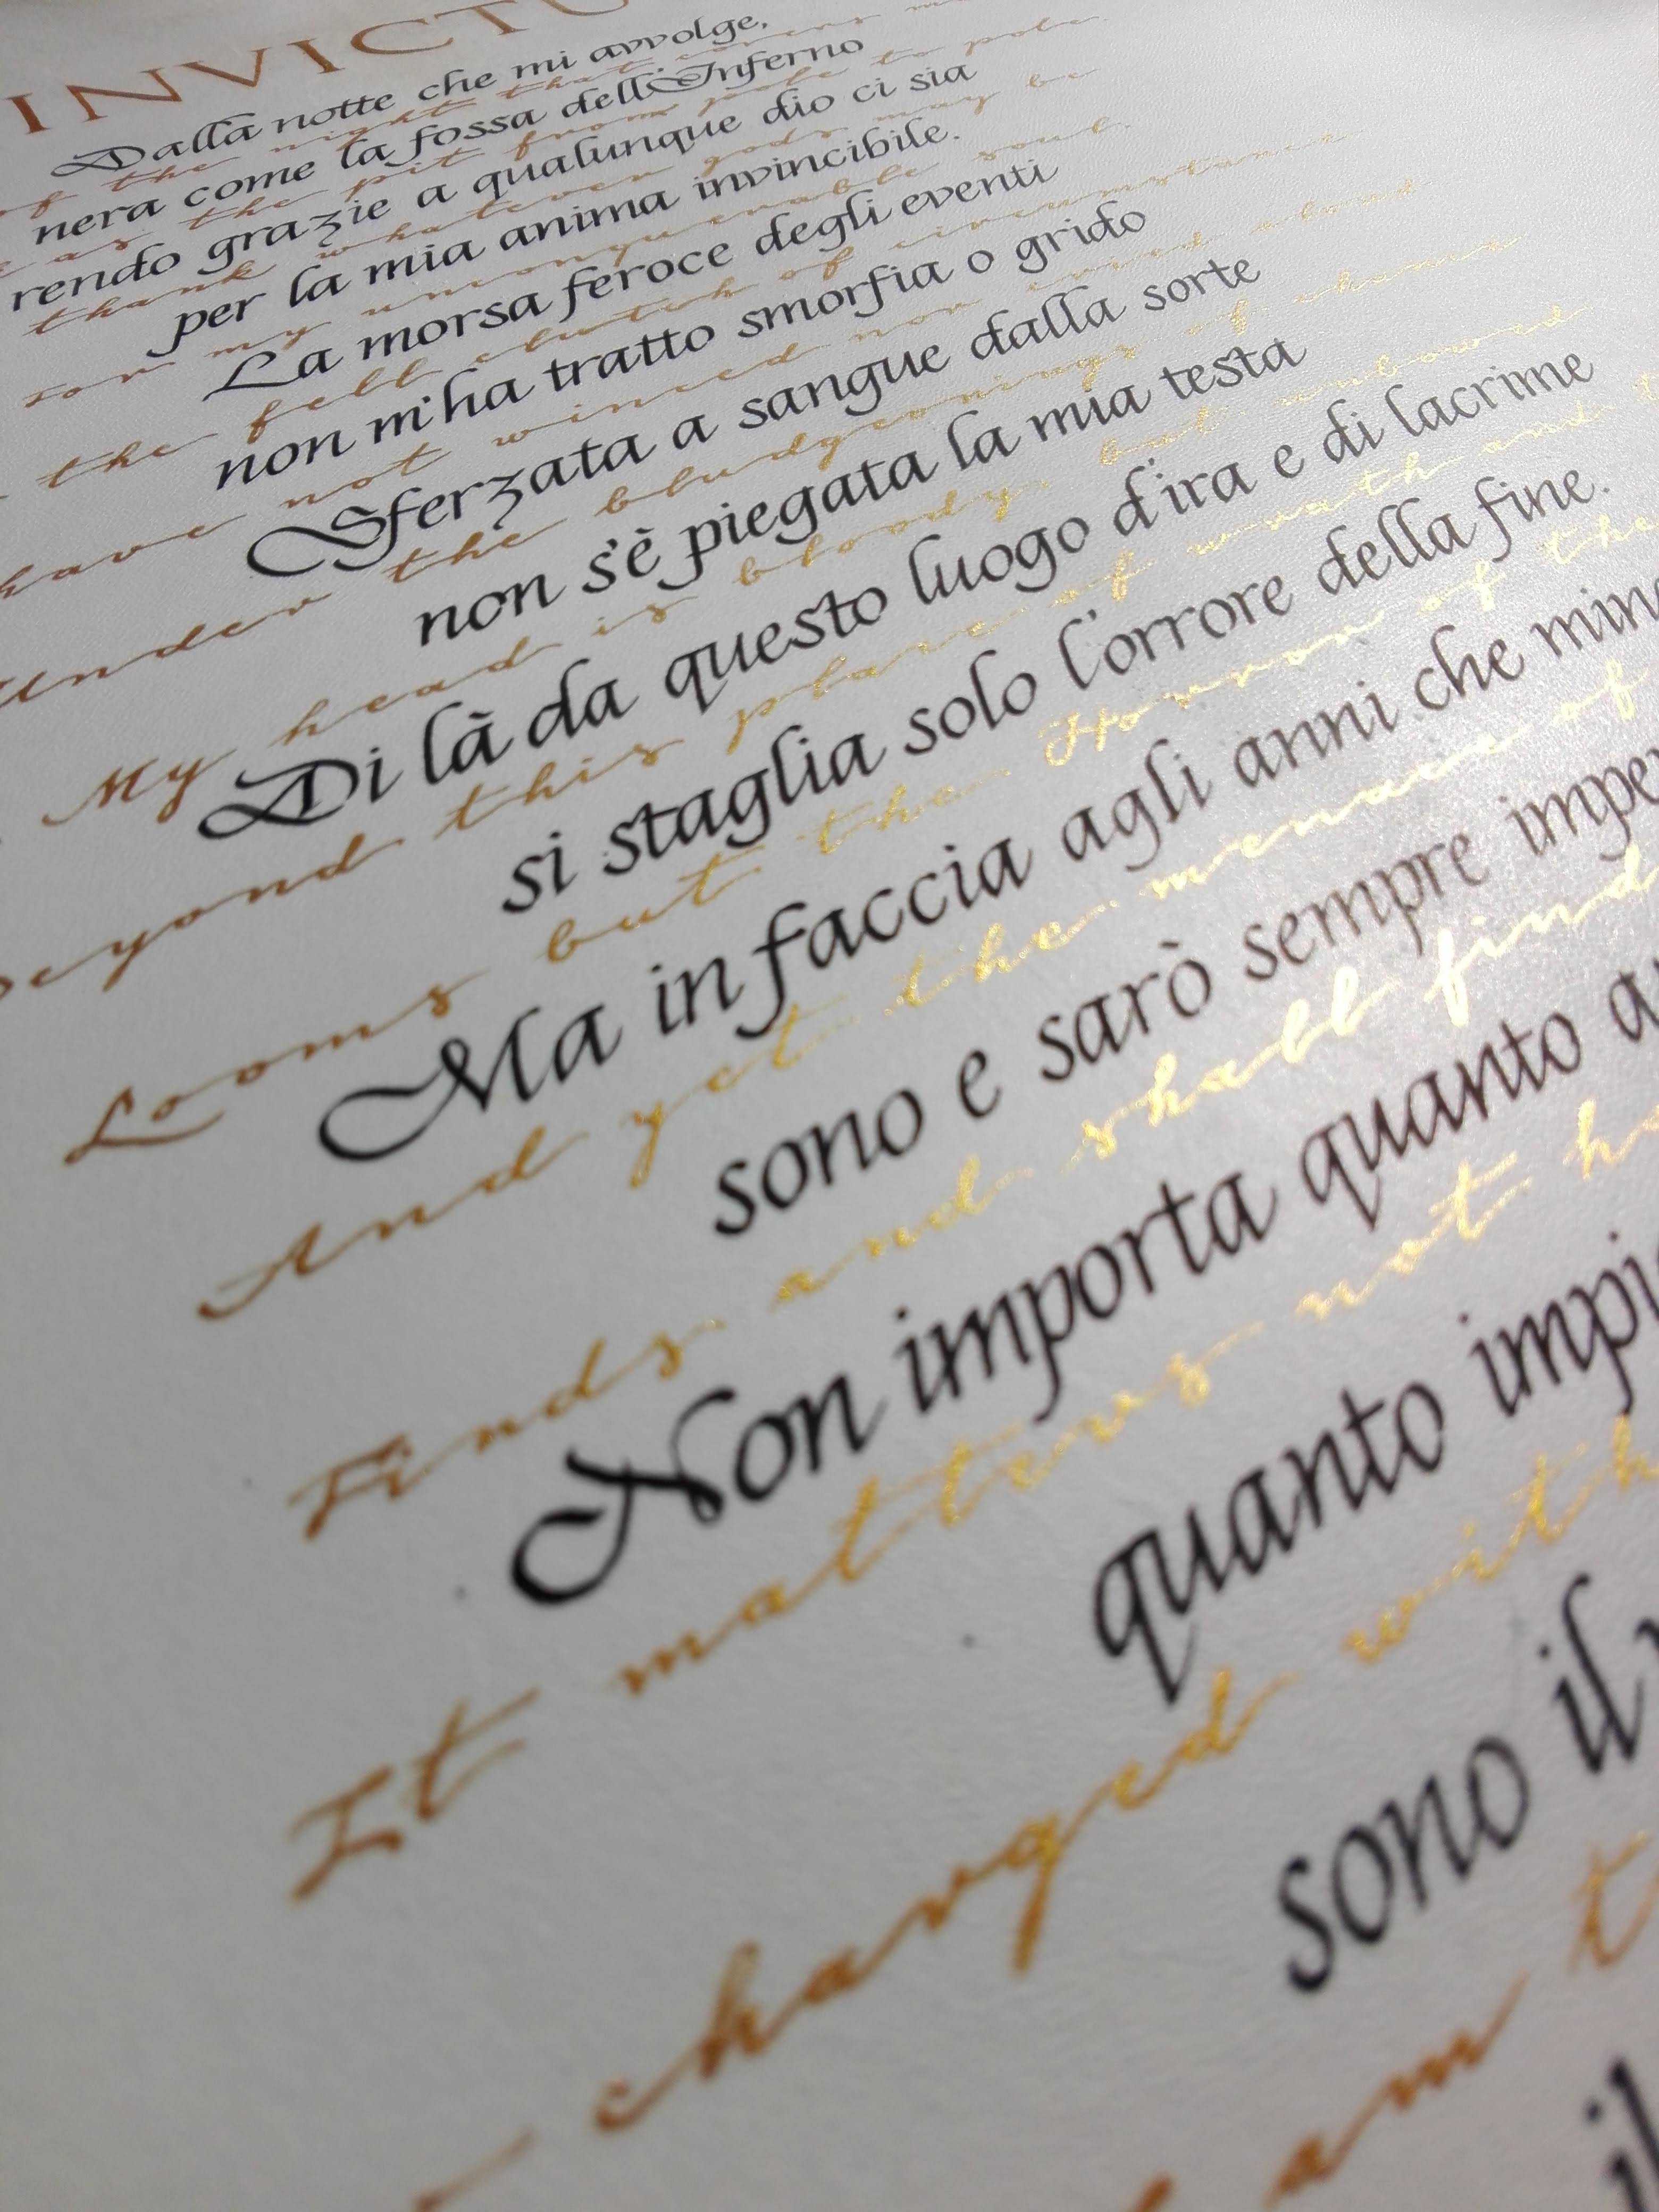 INVICTU
Dalla notte che mi avvolge,
of the night that covers me
nera come la fossa dell'Inferno
as the pit from pole to pole
rendo grazie a qualunque dio ci sia
thank whatever gods may be
per la mia anima invincibile.
for my unconquerable soul.
La morsa feroce degli eventi
the fell clutch of circumstance
non m'ha tratto smorfia o grido
have not winced nor cried aloud
Sferzata a sangue dalla sorte
Under the bludgeonings of chance
non s'è piegata la mia testa
My head is bloody, but unbowed
Di là da questo luogo d'ira e di lacrime
Beyond this place of wrath and t
si staglia solo l'orrore della fine.
Looms but the Horror of the
Ma in faccia agli anni che mina
And yet the menace of
sono e sarò sempre imper
Finds and shall find
Non importa quanto
It matters not h
quanto impi
charged with
sono il
am t
il